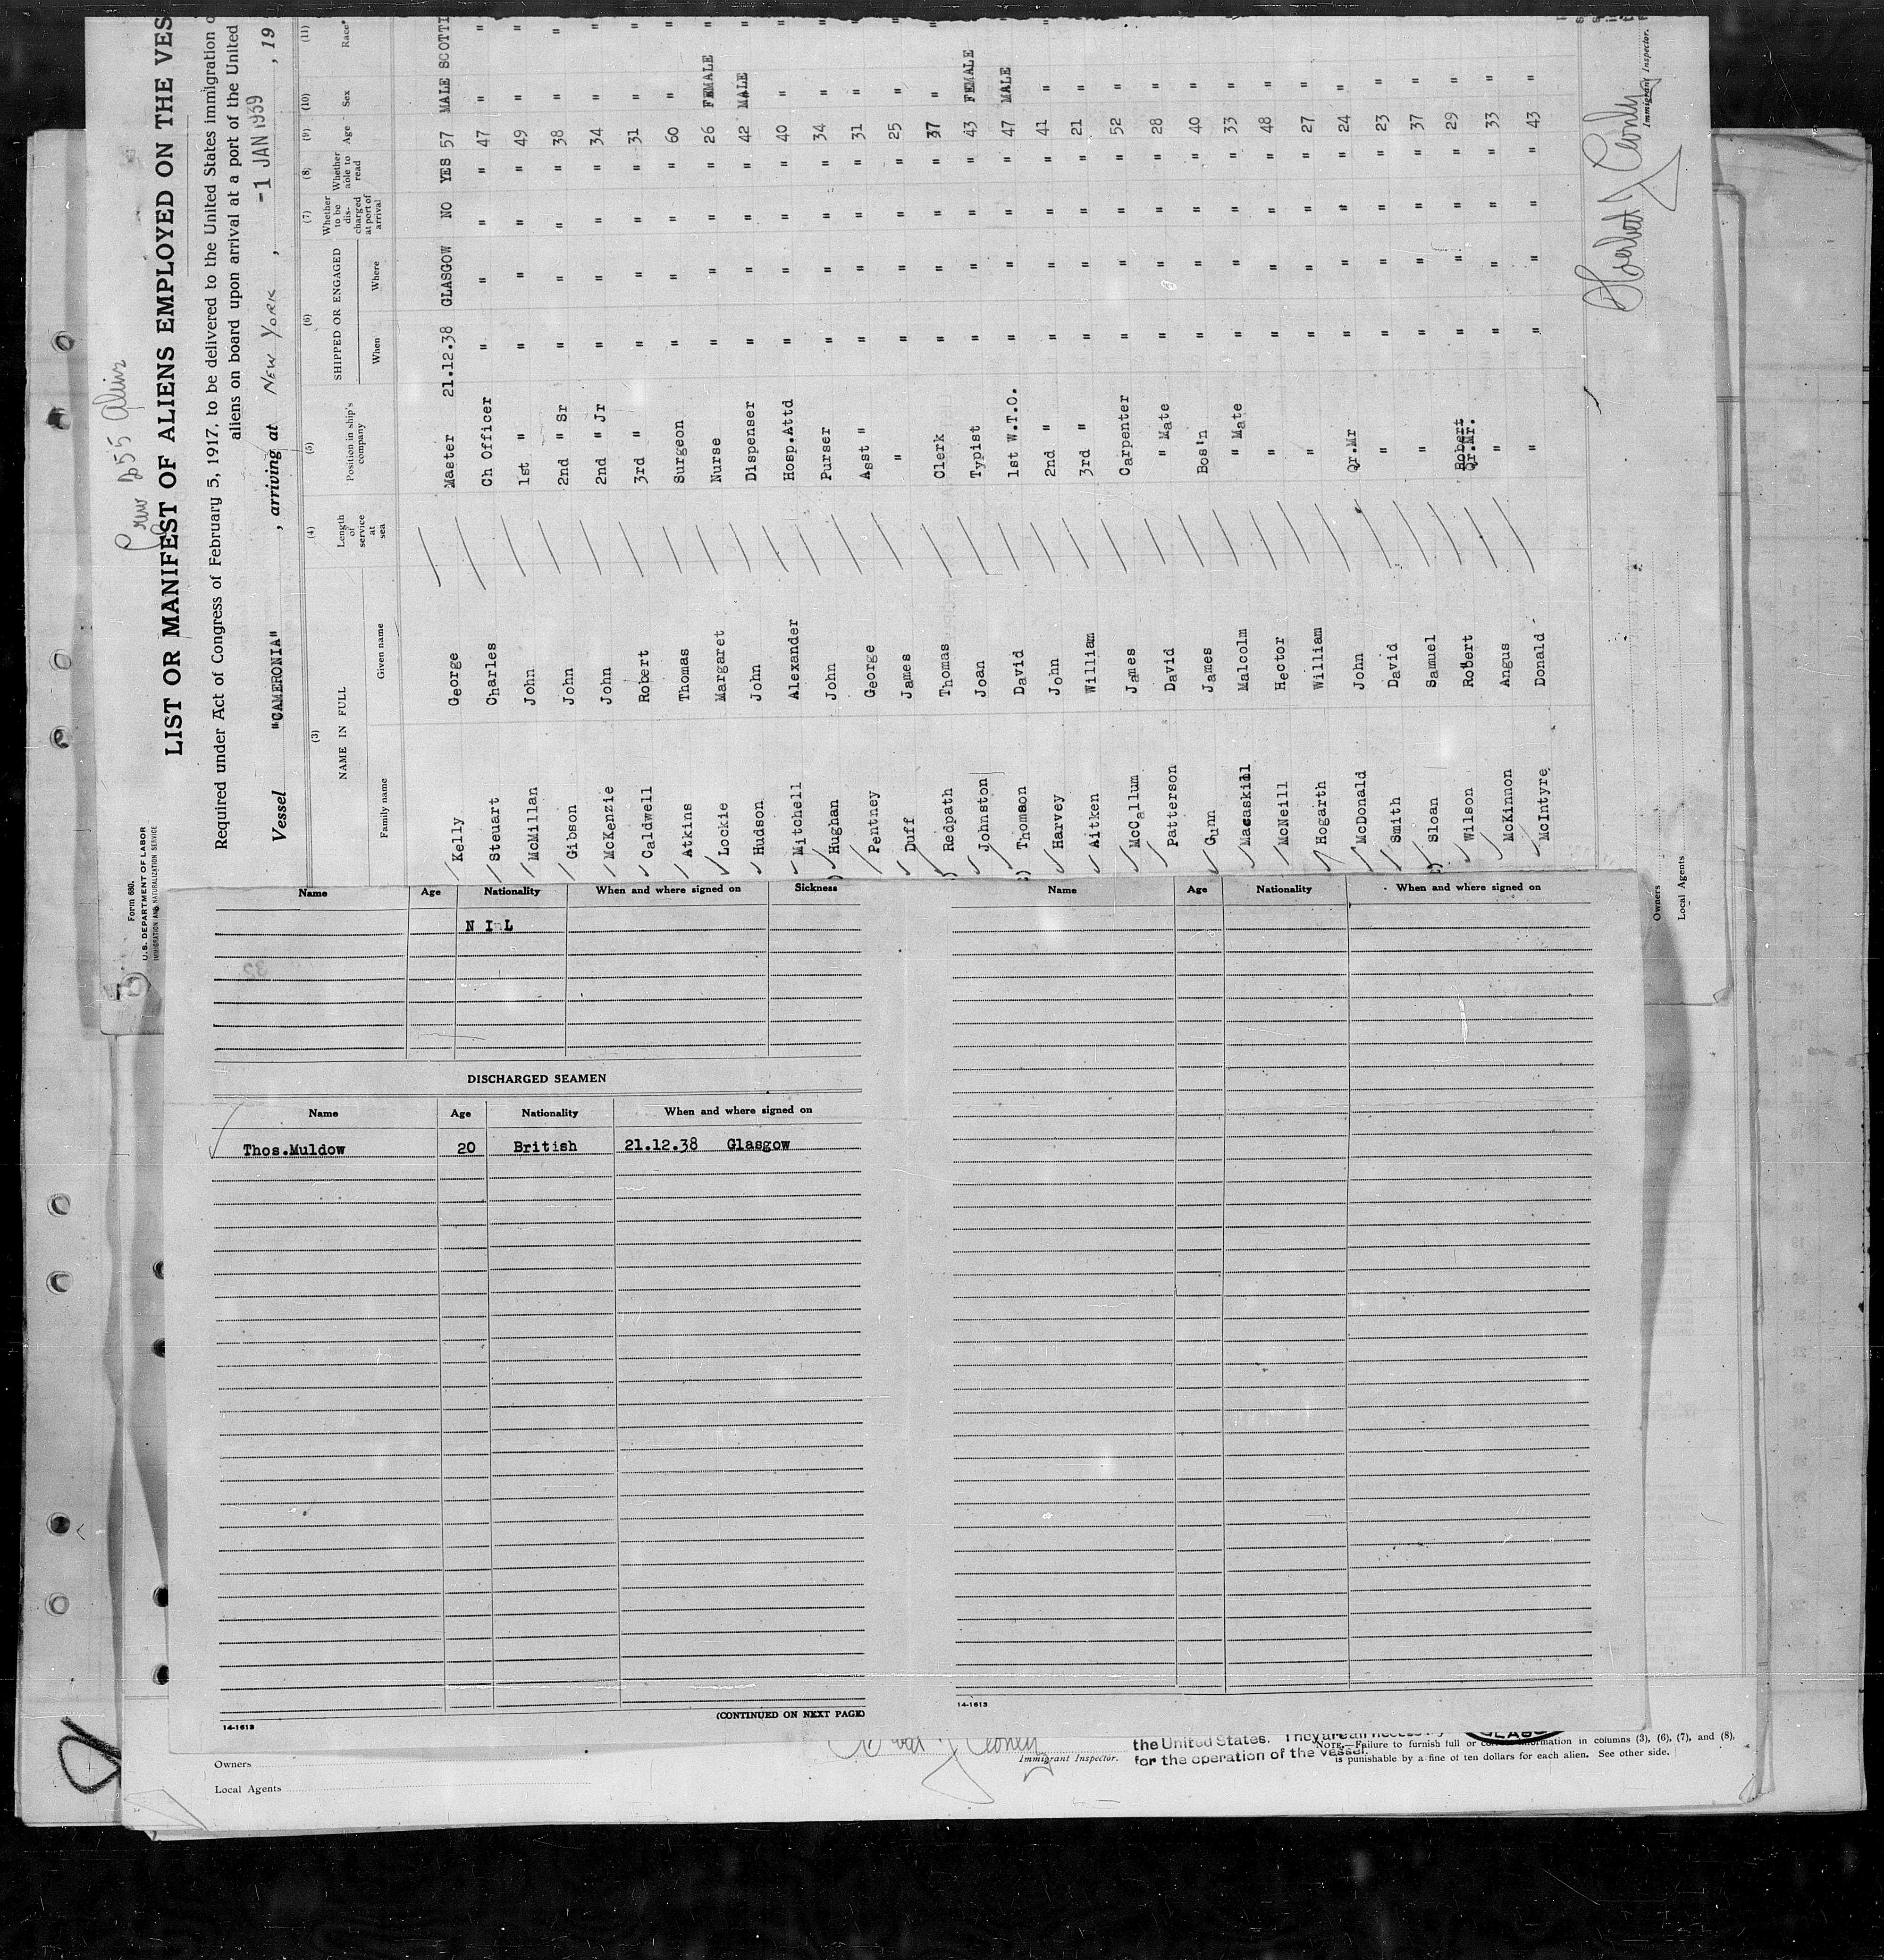 Crew 255 Aliens
Form 680.
U. S. DEPARTMENT OF LABOR
IMMIGRATION AND NATURALIZATION SERVICE
LIST OR MANIFEST OF ALIENS EMPLOYED ON THE VES
Required under Act of Congress of February 5, 1917, to be delivered to the United States immigration
aliens on board upon arrival at a port of the United
Vessel "CAMERONIA" , arriving at NEW YORK , -1 JAN 1939 , 19
(3) (4) (5) (6) (7) (8) (9) (10) (11)
NAME IN FULL Length of service at sea Position in ship's company SHIPPED OR ENGAGED Whether to be discharged at port of arrival Whether able to read Age Sex Race*
Family name Given name When Where
Kelly George Master 21.12.38 GLASGOW NO YES 57 MALE SCOTTI
Steuart Charles Ch Officer " " " " 47 " "
McMillan John 1st " " " " " 49 " "
Gibson John 2nd " Sr " " " " 38 " "
McKenzie John 2nd " Jr " " " " 34 " "
Caldwell Robert 3rd " " " " " 31 " "
Atkins Thomas Surgeon " " " " 60 " "
Lockie Margaret Nurse " " " " 26 FEMALE "
Hudson John Dispenser " " " " 42 MALE "
Mitchell Alexander Hosp.Attd " " " " 40 " "
Hughan John Purser " " " " 34 " "
Pentney George Asst " " " " " 31 " "
Duff James " " " " " 25 " "
Redpath Thomas Clerk " " " " 37 " "
Johnston Joan Typist " " " " 43 FEMALE "
Thomson David 1st W.T.O. " " " " 47 MALE "
Harvey John 2nd " " " " " 41 " "
Aitken William 3rd " " " " " 21 " "
McCallum James Carpenter " " " " 52 " "
Patterson David " Mate " " " " 28 " "
Gunn James Bos'n " " " " 40 " "
Macaskill Malcolm " Mate " " " " 33 " "
McNeill Hector " " " " " 48 " "
Hogarth William " " " " " 27 " "
McDonald John Qr.Mr " " " " 24 " "
Smith David " " " " " 23 " "
Sloan Samuel " " " " " 37 " "
Wilson Robert Robert Qr.Mr. " " " " 29 " "
McKinnon Angus " " " " " 33 " "
McIntyre Donald " " " " " 43 " "
Immigrant Inspector.
Owners
Local Agents
Name Age Nationality When and where signed on Sickness
N I L
DISCHARGED SEAMEN
Name Age Nationality When and where signed on
Thos.Muldow 20 British 21.12.38 Glasgow
(CONTINUED ON NEXT PAGE)
14-1613
Name Age Nationality When and where signed on
14-1613
Owners
Local Agents
Immigrant Inspector.
the United States. They are all necessary
for the operation of the vessel.
NOTE.—Failure to furnish full or correct information in columns (3), (6), (7), and (8),
is punishable by a fine of ten dollars for each alien. See other side.